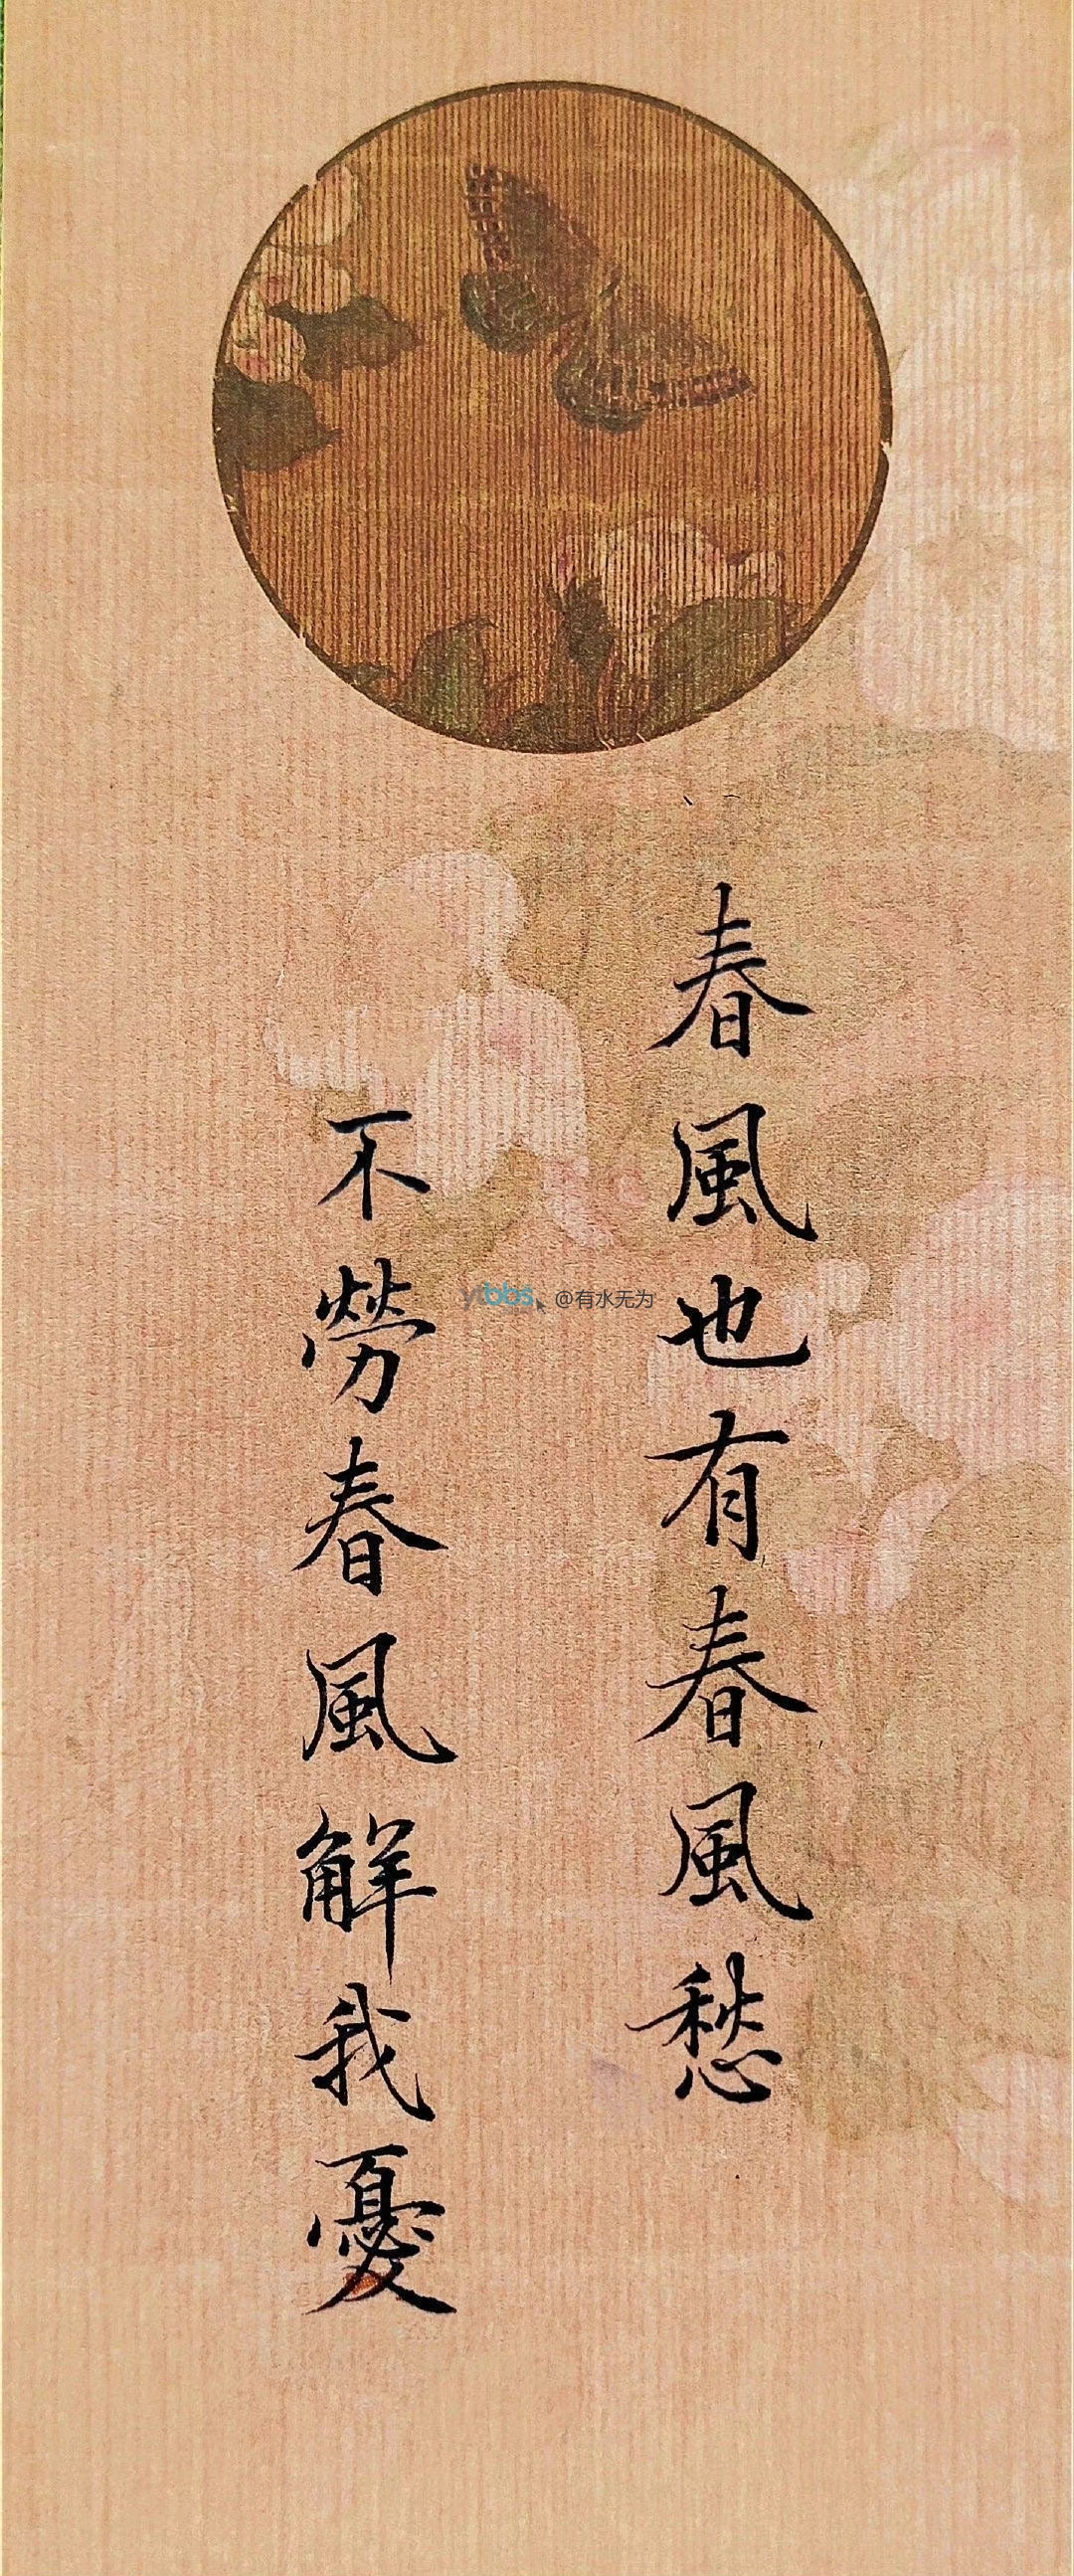 春風也有春風愁
不勞春風解我憂
ytbbs @有水无为